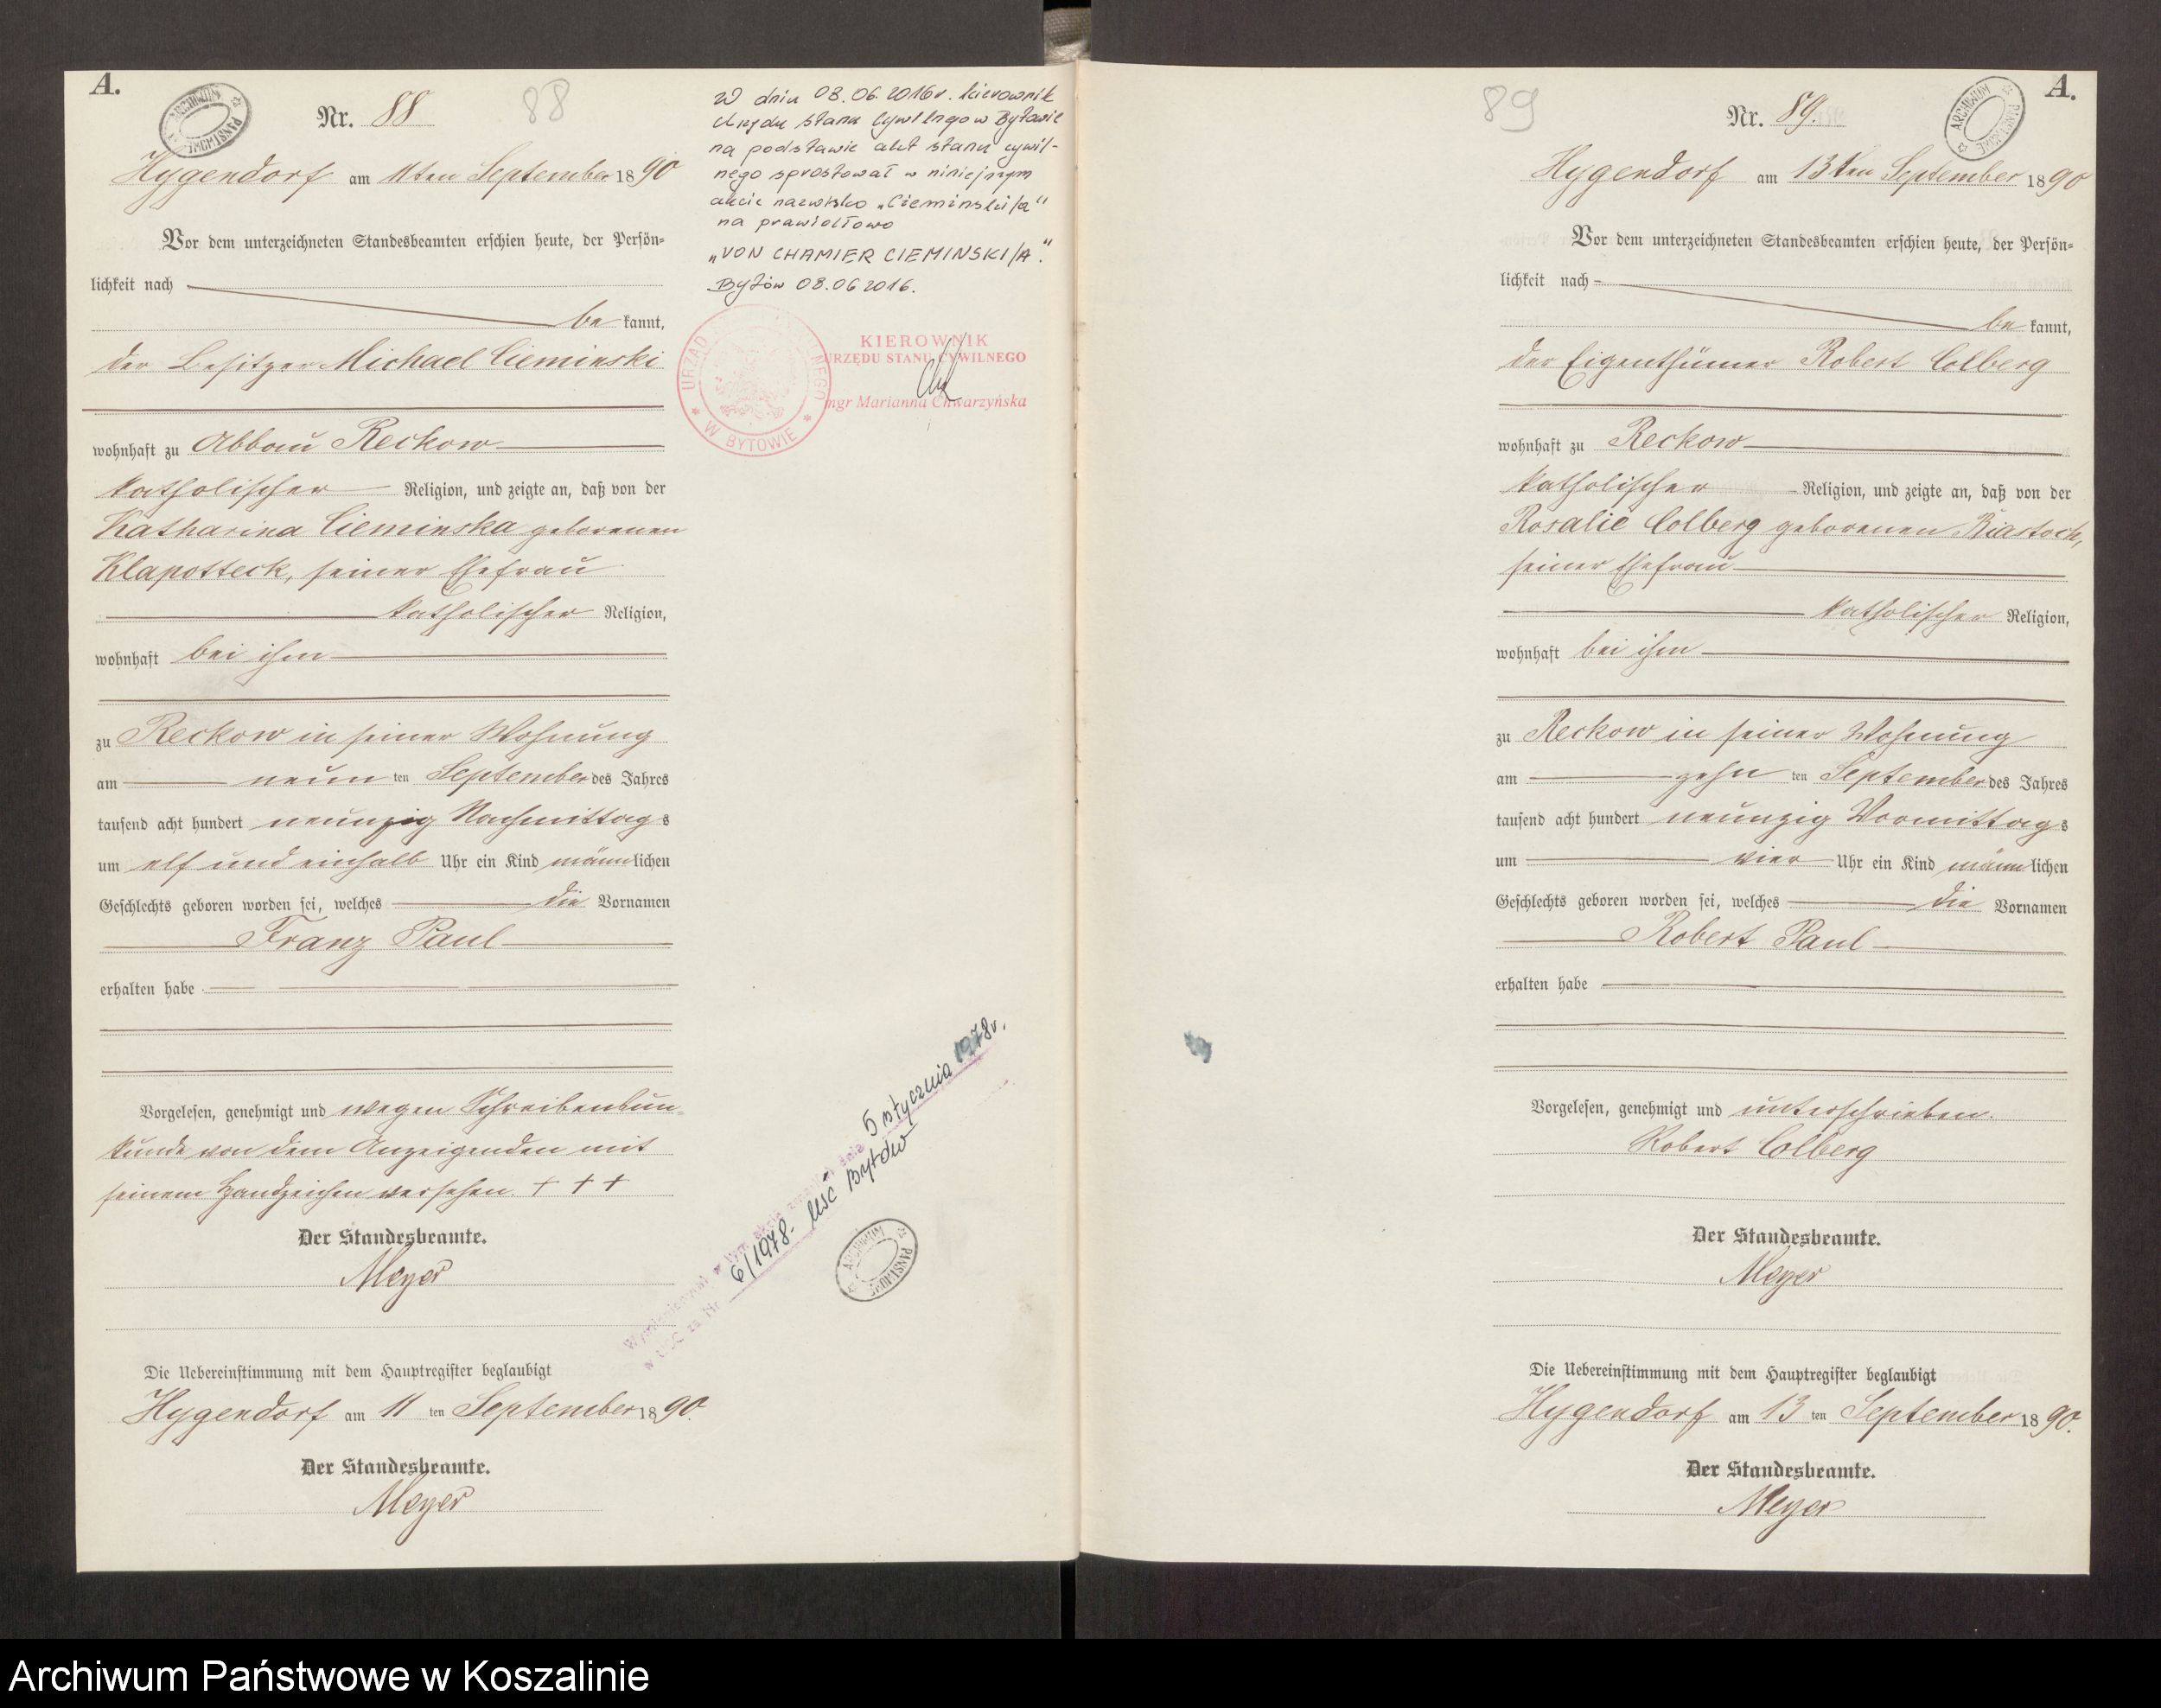 A.
ARCHIWUM PAŃSTWOWE
Nr. 88
88
Hygendorf am 11ten September 1890
Vor dem unterzeichneten Standesbeamten erschien heute, der Persön-
lichkeit nach
be kannt,
der Besitzer Michael Cieminski
wohnhaft zu Abbau Reckow
katholischer Religion, und zeigte an, daß von der
Katharina Cieminska geborenen
Klapotteck, seiner Ehefrau
katholischer Religion,
wohnhaft bei ihm
zu Reckow in seiner Wohnung
am neun ten September des Jahres
tausend acht hundert neunzig Nachmittags
um elf und einhalb Uhr ein Kind männlichen
Geschlechts geboren worden sei, welches die Vornamen
Franz Paul
erhalten habe
Vorgelesen, genehmigt und wegen Schreibensun-
kunde von dem Anzeigenden mit
seinem Handzeichen versehen. + + +
Der Standesbeamte.
Meyer
Die Uebereinstimmung mit dem Hauptregister beglaubigt
Hygendorf am 11 ten September 1890.
Der Standesbeamte.
Meyer
W dniu 08.06.2016r. kierownik
Urzędu Stanu Cywilnego w Bytowie
na podstawie akt stanu cywil-
nego sprostował w niniejszym
akcie nazwisko „Cieminski/a"
na prawidłowo
„VON CHAMIER CIEMINSKI/A".
Bytów 08.06.2016.
KIEROWNIK
URZĘDU STANU CYWILNEGO
mgr Marianna Chwarzyńska
W BYTOWIE
dnia 5 stycznia 1978r.
6/1978 - USC Bytów
ARCHIWUM PAŃSTWOWE
A.
ARCHIWUM PAŃSTWOWE
89
Nr. 89.
Hygendorf am 13ten September 1890
Vor dem unterzeichneten Standesbeamten erschien heute, der Persön-
lichkeit nach
be kannt,
der Eigenthümer Robert Colberg
wohnhaft zu Reckow
katholischer Religion, und zeigte an, daß von der
Rosalie Colberg geborenen
seiner Ehefrau
katholischer Religion,
wohnhaft bei ihm
zu Reckow in seiner Wohnung
am zehn ten September des Jahres
tausend acht hundert neunzig Vormittags
um vier Uhr ein Kind männlichen
Geschlechts geboren worden sei, welches die Vornamen
Robert Paul
erhalten habe
Vorgelesen, genehmigt und unterschrieben.
Robert Colberg
Der Standesbeamte.
Meyer
Die Uebereinstimmung mit dem Hauptregister beglaubigt
Hygendorf am 13 ten September 1890.
Der Standesbeamte.
Meyer
Archiwum Państwowe w Koszalinie